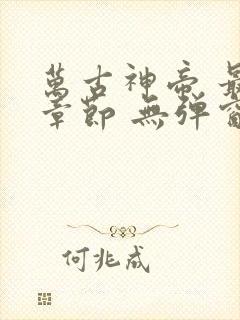 萬古神帝 最
章節 無彈窗
何兆成